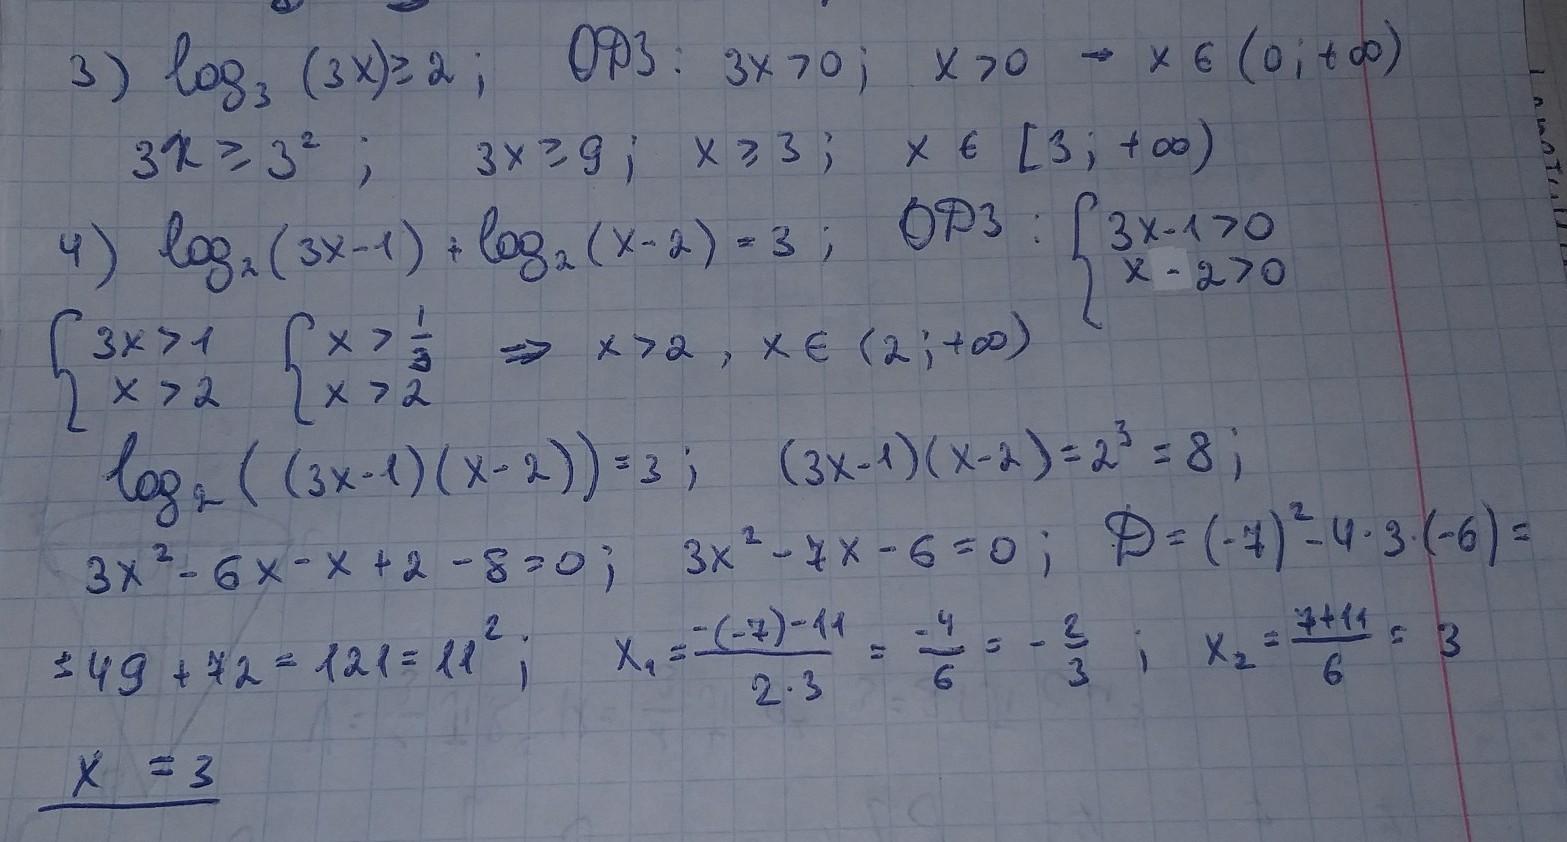 3) log₃ (3x) ≥ 2 ; ОДЗ : 3x > 0 ; x > 0 → x ∈ (0 ; +∞)
3x ≥ 3² ; 3x ≥ 9 ; x ≥ 3 ; x ∈ [3 ; +∞)
4) log₂ (3x-1) + log₂ (x-2) = 3 ; ОДЗ : { 3x-1 > 0
x - 2 > 0
{ 3x > 1 { x > 1/3 ⇒ x > 2 , x ∈ (2 ; +∞)
x > 2 x > 2
log₂ ( (3x-1) (x-2)) = 3 ; (3x-1) (x-2) = 2³ = 8 ;
3x² - 6x - x + 2 - 8 = 0 ; 3x² - 7x - 6 = 0 ; D = (-7)² - 4·3·(-6) =
= 49 + 72 = 121 = 11² ; x₁ = (-(-7)-11)/(2·3) = -4/6 = -2/3 ; x₂ = (7+11)/6 = 3
x = 3